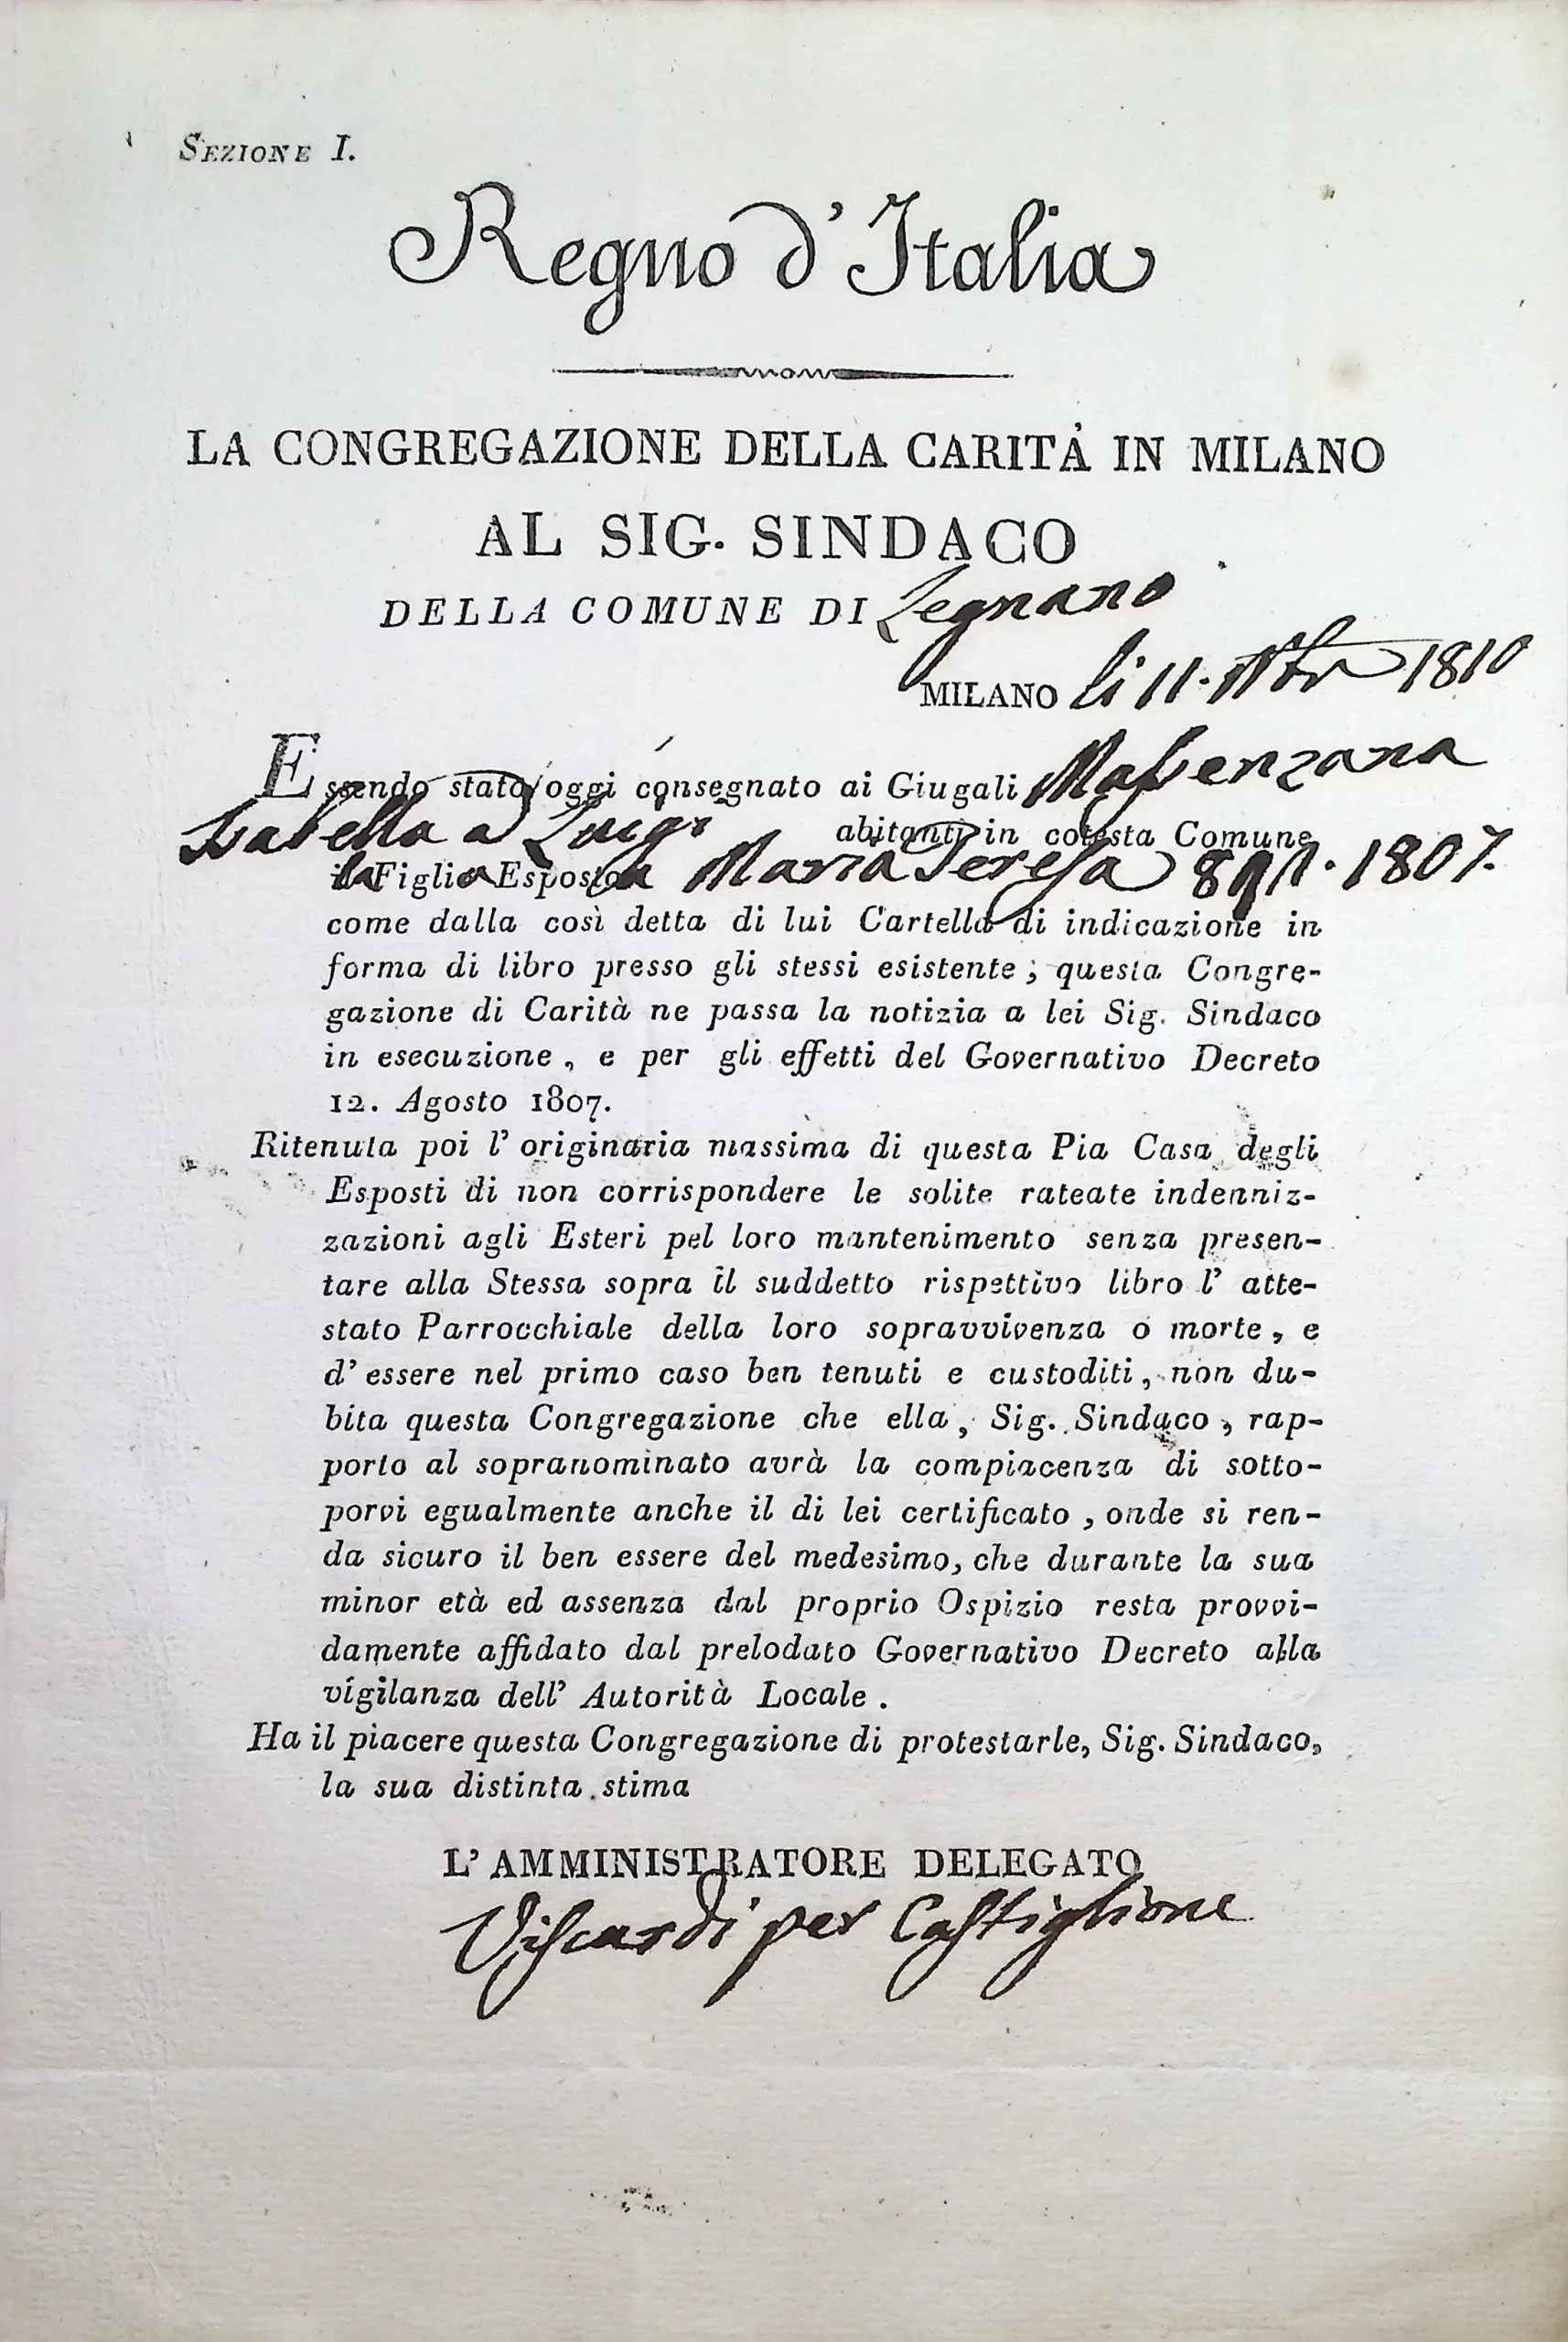 SEZIONE I.
Regno d'Italia
LA CONGREGAZIONE DELLA CARITÀ IN MILANO
AL SIG. SINDACO
DELLA COMUNE DI Legnano
MILANO li 11. 1810
Essendo stato oggi consegnato ai Giugali
Isabella a Luigi abitanti in cotesta Comune
la Figlia Esposta Maria Teresa 1807.
come dalla così detta di lui Cartella di indicazione in
forma di libro presso gli stessi esistente; questa Congre-
gazione di Carità ne passa la notizia a lei Sig. Sindaco
in esecuzione, e per gli effetti del Governativo Decreto
12. Agosto 1807.
Ritenuta poi l' originaria massima di questa Pia Casa degli
Esposti di non corrispondere le solite rateate indenniz-
zazioni agli Esteri pel loro mantenimento senza presen-
tare alla Stessa sopra il suddetto rispettivo libro l' atte-
stato Parrocchiale della loro sopravvivenza o morte, e
d' essere nel primo caso ben tenuti e custoditi, non du-
bita questa Congregazione che ella, Sig. Sindaco, rap-
porto al sopranominato avrà la compiacenza di sotto-
porvi egualmente anche il di lei certificato, onde si ren-
da sicuro il ben essere del medesimo, che durante la sua
minor età ed assenza dal proprio Ospizio resta provvi-
damente affidato dal prelodato Governativo Decreto alla
vigilanza dell' Autorità Locale.
Ha il piacere questa Congregazione di protestarle, Sig. Sindaco,
la sua distinta stima
L' AMMINISTRATORE DELEGATO
Viscardi per Castiglione